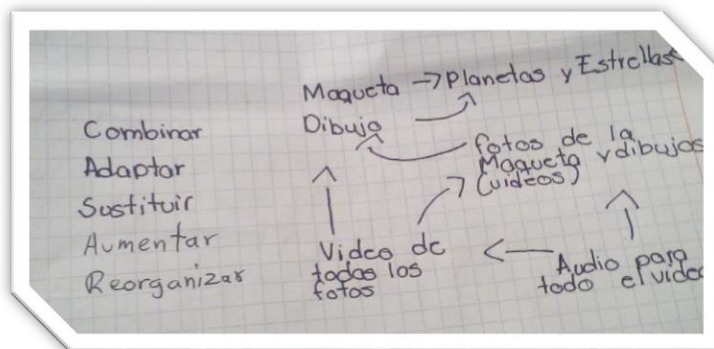 Combinar
Adaptar
Sustituir
Aumentar
Reorganizar
Maqueta → Planetas y Estrellas
Dibujo
fotos de la
Maqueta y dibujos
(videos)
Video de
todas los
fotos
Audio para
todo el video